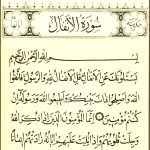 سُورَةُ الأَنفَالِ
بِسْمِ اللَّهِ الرَّحْمَٰنِ الرَّحِيمِ
يَسْـَٔلُونَكَ عَنِ الْأَنفَالِ قُلِ الْأَنفَالُ لِلَّهِ وَالرَّسُولِ فَاتَّقُوا
اللَّهَ وَأَصْلِحُوا ذَاتَ بَيْنِكُمْ وَأَطِيعُوا اللَّهَ وَرَسُولَهُ إِن
كُنتُم مُّؤْمِنِينَ ۝ إِنَّمَا الْمُؤْمِنُونَ الَّذِينَ إِذَا ذُكِرَ اللَّهُ
وَجِلَتْ قُلُوبُهُمْ وَإِذَا تُلِيَتْ عَلَيْهِمْ ءَايَٰتُهُ زَادَتْهُمْ إِيمَٰنًا